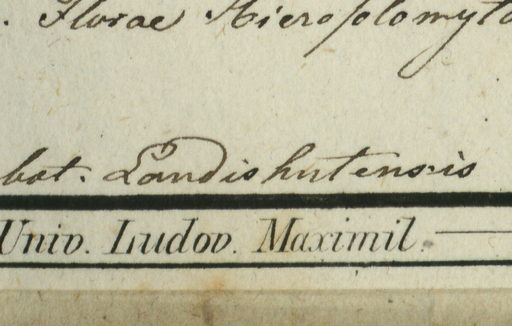 . Florae Hierosolomyta
bot. Landishutensis
Univ. Ludov. Maximil.